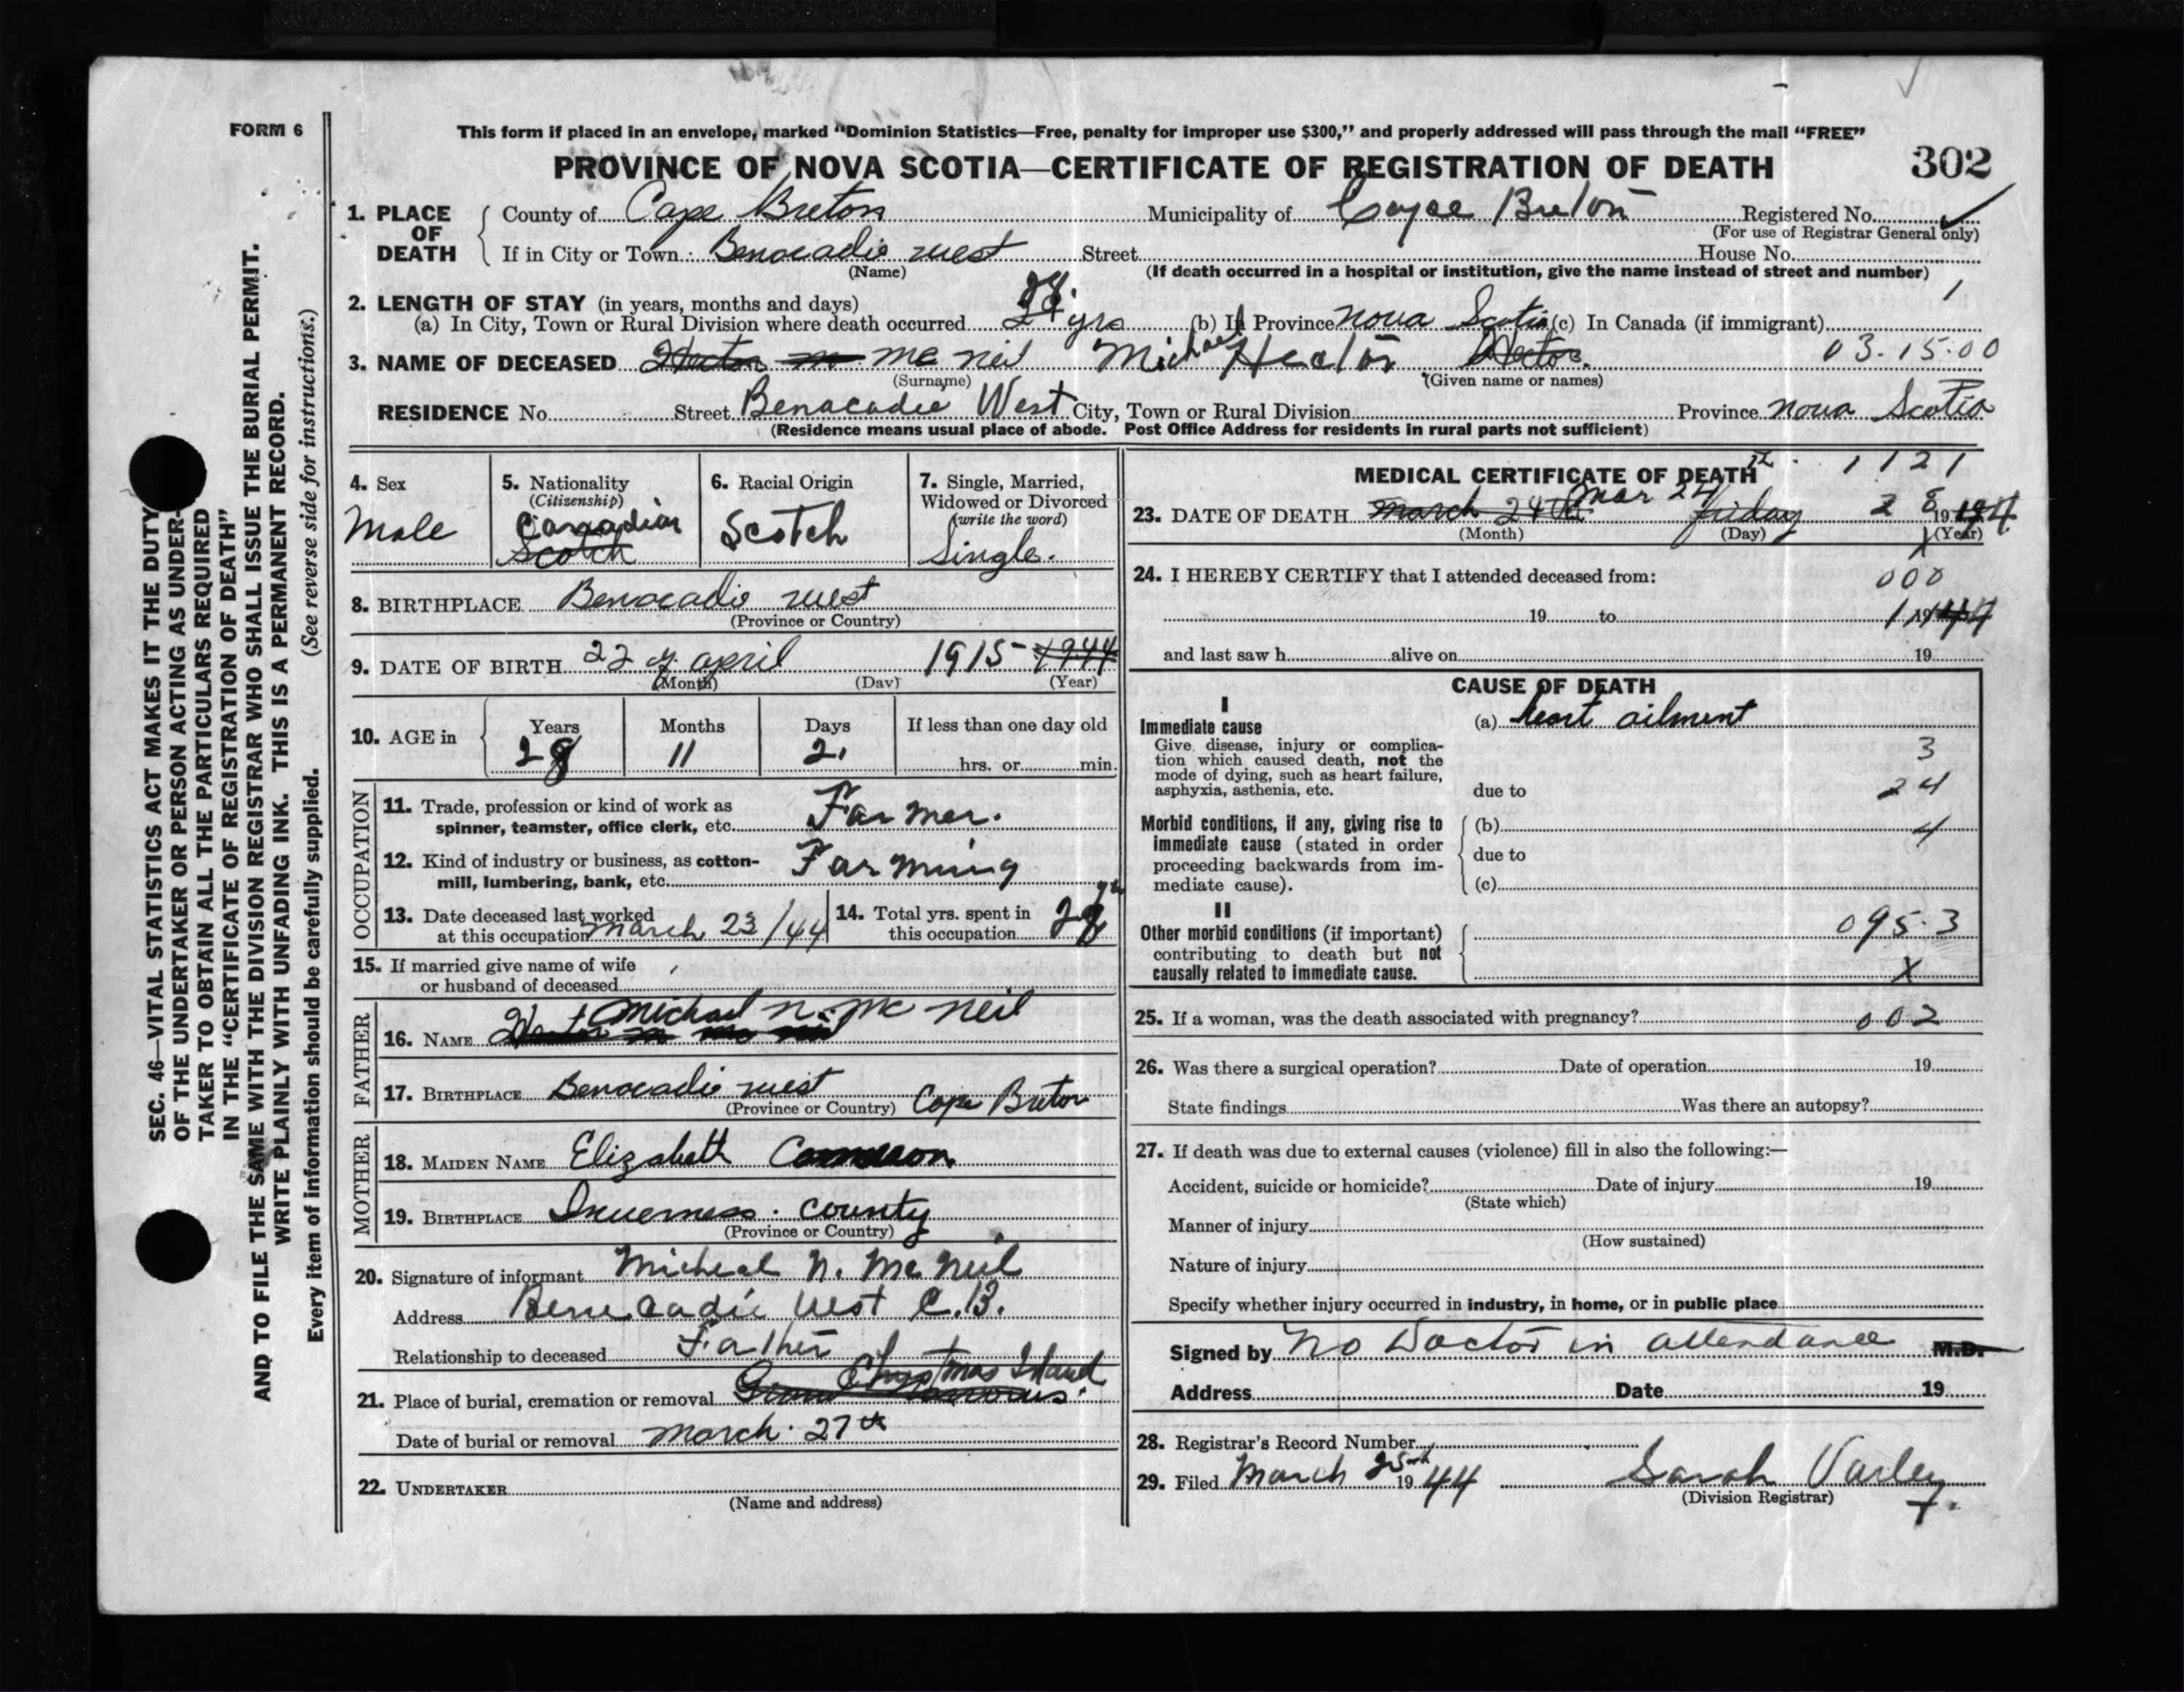 FORM 6
This form if placed in an envelope, marked "Dominion Statistics—Free, penalty for improper use $300," and properly addressed will pass through the mail "FREE"
PROVINCE OF NOVA SCOTIA—CERTIFICATE OF REGISTRATION OF DEATH
302
SEC. 46—VITAL STATISTICS ACT MAKES IT THE DUTY
OF THE UNDERTAKER OR PERSON ACTING AS UNDER-
TAKER TO OBTAIN ALL THE PARTICULARS REQUIRED
IN THE "CERTIFICATE OF REGISTRATION OF DEATH"
AND TO FILE THE SAME WITH THE DIVISION REGISTRAR WHO SHALL ISSUE THE BURIAL PERMIT.
WRITE PLAINLY WITH UNFADING INK. THIS IS A PERMANENT RECORD.
Every item of information should be carefully supplied. (See reverse side for instructions.)
1. PLACE OF DEATH County of Cape Breton Municipality of Cape Breton Registered No.
(For use of Registrar General only)
If in City or Town Benacadie west Street House No.
(Name) (If death occurred in a hospital or institution, give the name instead of street and number)
2. LENGTH OF STAY (in years, months and days) 28 1
(a) In City, Town or Rural Division where death occurred yrs (b) In Province Nova Scotia (c) In Canada (if immigrant)
3. NAME OF DECEASED Hector Mc Neil Michael Hector Hector. 03.15.00
(Surname) (Given name or names)
RESIDENCE No. Street Benacadie West City, Town or Rural Division Province Nova Scotia
(Residence means usual place of abode. Post Office Address for residents in rural parts not sufficient)
4. Sex
Male
5. Nationality
(Citizenship)
Canadian
Scotch
6. Racial Origin
Scotch
7. Single, Married,
Widowed or Divorced
(write the word)
Single.
8. BIRTHPLACE Benacadie west
(Province or Country)
9. DATE OF BIRTH 22 of april 1915 1944
(Month) (Day) (Year)
10. AGE in Years Months Days If less than one day old
28 11 2 hrs. or min.
OCCUPATION
11. Trade, profession or kind of work as
spinner, teamster, office clerk, etc. Farmer.
12. Kind of industry or business, as cotton-
mill, lumbering, bank, etc. Farming
13. Date deceased last worked
at this occupation March 23/44
14. Total yrs. spent in
this occupation 28
15. If married give name of wife
or husband of deceased
FATHER
16. NAME Michael N. Mc Neil
17. BIRTHPLACE Benacadie west Cape Breton
(Province or Country)
MOTHER
18. MAIDEN NAME Elizabeth Cameron
19. BIRTHPLACE Inverness. County
(Province or Country)
20. Signature of informant Micheal N. McNeil
Address Benecadie West C.B.
Relationship to deceased Father
Christmas Island
21. Place of burial, cremation or removal
Date of burial or removal March. 27th
22. UNDERTAKER
(Name and address)
MEDICAL CERTIFICATE OF DEATH 1121
23. DATE OF DEATH March 24th Mar 24 friday 28 1944
(Month) (Day) (Year)
24. I HEREBY CERTIFY that I attended deceased from: 000
19 to 1944
and last saw h alive on 19
CAUSE OF DEATH
I
Immediate cause (a) heart ailment
Give disease, injury or complica-
tion which caused death, not the
mode of dying, such as heart failure,
asphyxia, asthenia, etc. due to
3
24
Morbid conditions, if any, giving rise to
immediate cause (stated in order
proceeding backwards from im-
mediate cause).
(b) 4
due to
(c)
II
Other morbid conditions (if important)
contributing to death but not
causally related to immediate cause.
095.3
X
25. If a woman, was the death associated with pregnancy? 002
26. Was there a surgical operation? Date of operation 19
State findings Was there an autopsy?
27. If death was due to external causes (violence) fill in also the following:—
Accident, suicide or homicide? Date of injury 19
(State which)
Manner of injury
(How sustained)
Nature of injury
Specify whether injury occurred in industry, in home, or in public place
Signed by No Doctor in attendance M.D.
Address Date 19
28. Registrar's Record Number
29. Filed March 25th 1944 Sarah Varley
(Division Registrar)
7.